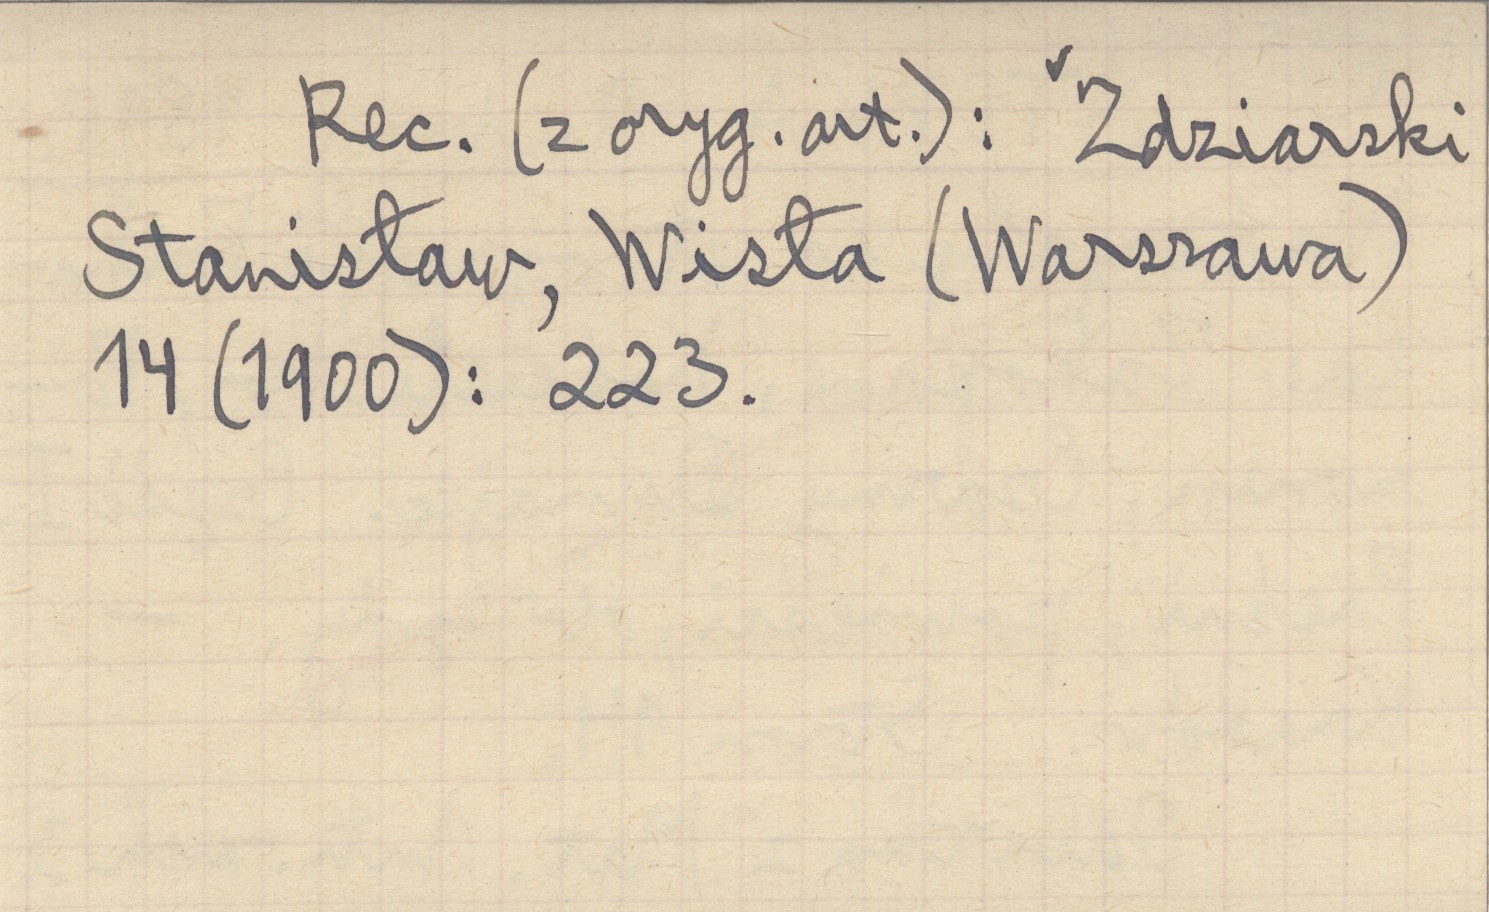 Rec. (z oryg. art.): ✓Zdziarski
Stanisław, Wisła (Warszawa)
14 (1900): 223.